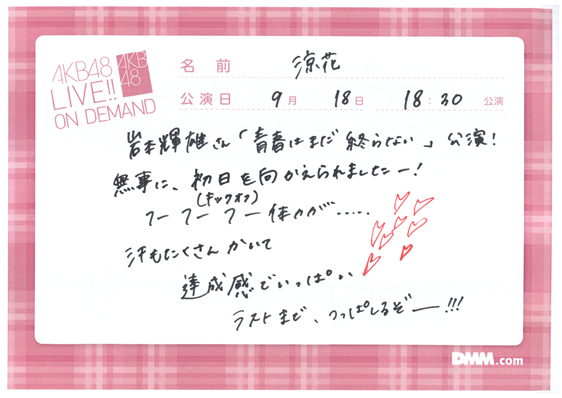 AKB48
LIVE!!
ON DEMAND
AKB
48
名前 涼花
公演日 9月 18日 18:30 公演
岩本輝雄さん「青春はまだ終らない」公演!
無事に、初日を向かえられましたー!
(キックオフ)
フー フー フー 体力が……
汗もたくさんかいて
達成感でいっぱい
ラストまで、つっぱしるぞー!!!
DMM.com